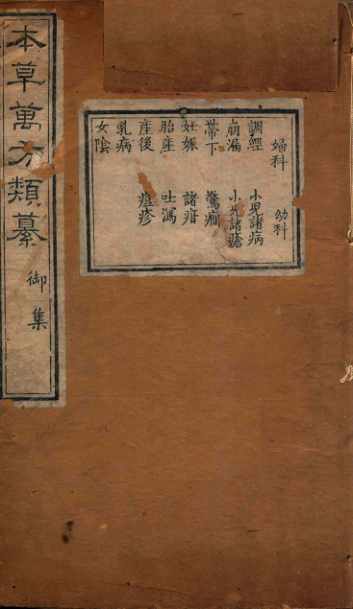 本草萬方類纂
御集
婦科 幼科
調經 小兒諸病
崩漏 小兒諸瘡
帶下 驚癇
妊娠 諸疳
胎產 吐瀉
產後 痘疹
乳病
女陰